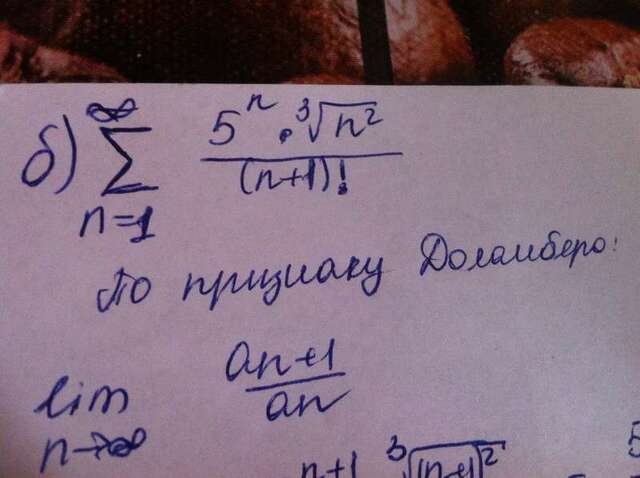 б) ∞ ∑ n=1 5ⁿ · ³√n² / (n+1)!
По прициаку Доламберо:
lim n→∞ an+1 / an
n+1 ³√(n+1)²
5